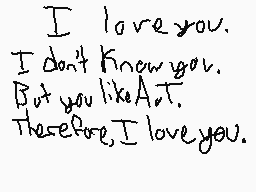 I love you.
I don't know you.
But you like A.T.
Therefore, I love you.